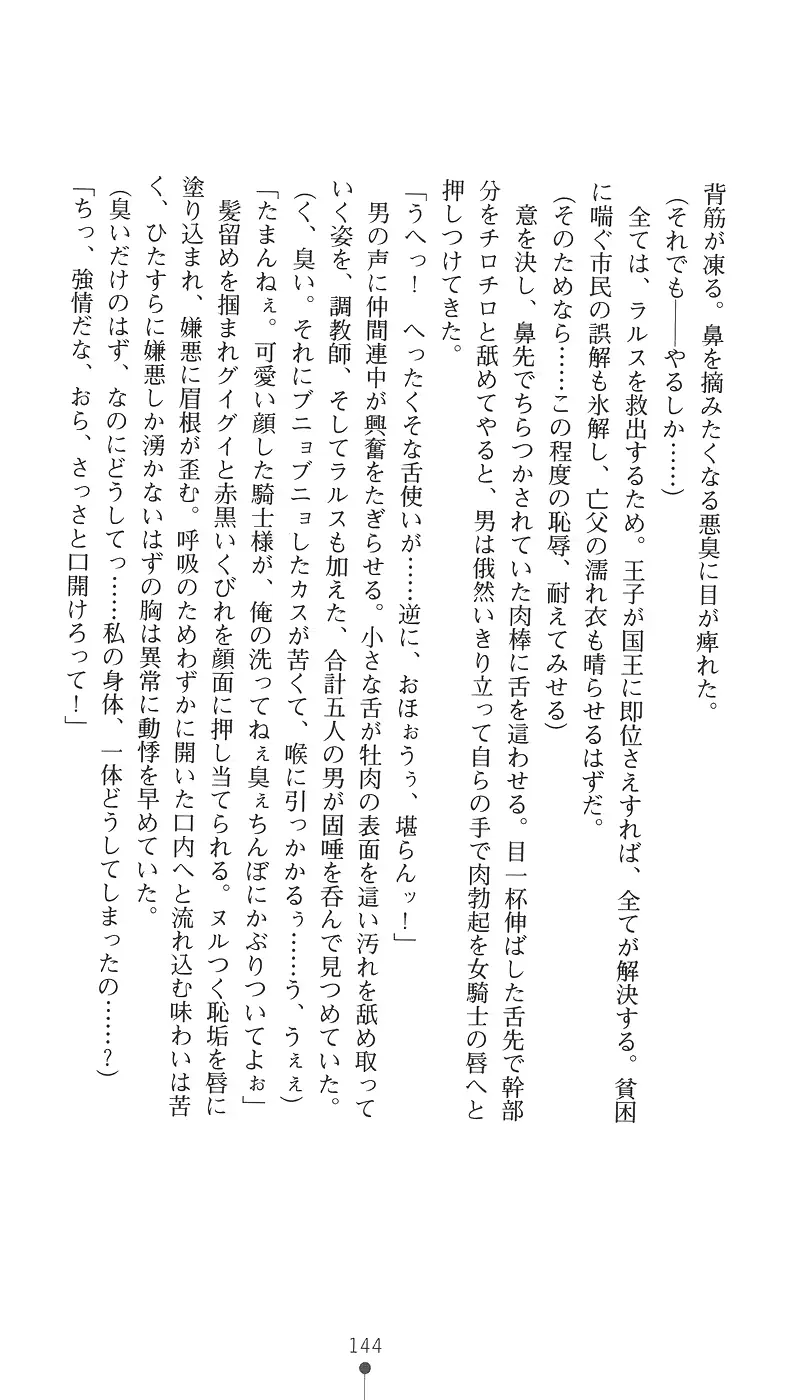 背筋が凍る。鼻を摘みたくなる悪臭に目が痺れた。
(それでも――やるしか……)
全ては、ラルスを救出するため。王子が国王に即位さえすれば、全てが解決する。貧困
に喘ぐ市民の誤解も氷解し、亡父の濡れ衣も晴らせるはずだ。
(そのためなら……この程度の恥辱、耐えてみせる)
意を決し、鼻先でちらつかされていた肉棒に舌を這わせる。目一杯伸ばした舌先で幹部
分をチロチロと舐めてやると、男は俄然いきり立って自らの手で肉勃起を女騎士の唇へと
押しつけてきた。
「うへっ！　へったくそな舌使いが……逆に、おほぉうぅ、堪らんッ！」
男の声に仲間連中が興奮をたぎらせる。小さな舌が牡肉の表面を這い汚れを舐め取って
いく姿を、調教師、そしてラルスも加えた、合計五人の男が固唾を呑んで見つめていた。
(く、臭い。それにブニョブニョしたカスが苦くて、喉に引っかかるぅ……う、うぇぇ)
「たまんねぇ。可愛い顔した騎士様が、俺の洗ってねぇ臭ぇちんぽにかぶりついてよぉ」
髪留めを掴まれグイグイと赤黒いくびれを顔面に押し当てられる。ヌルつく恥垢を唇に
塗り込まれ、嫌悪に眉根が歪む。呼吸のためわずかに開いた口内へと流れ込む味わいは苦
く、ひたすらに嫌悪しか湧かないはずの胸は異常に動悸を早めていた。
(臭いだけのはず、なのにどうしてっ……私の身体、一体どうしてしまったの……？)
「ちっ、強情だな、おら、さっさと口開けろって！」
144